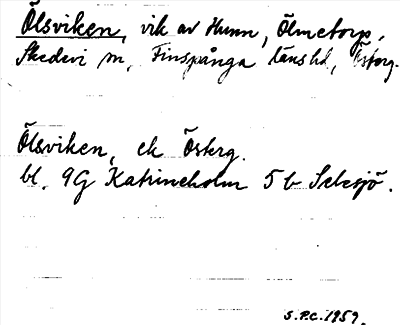 Ölsviken, vik av Hunn, Ölmetorp,
Skedevi sn, Finspånga länshd, Österg.
Ölsviken, ek Österg.
bl. 9G Katrineholm 5 b Selesjö.
S.P.C. 1959.